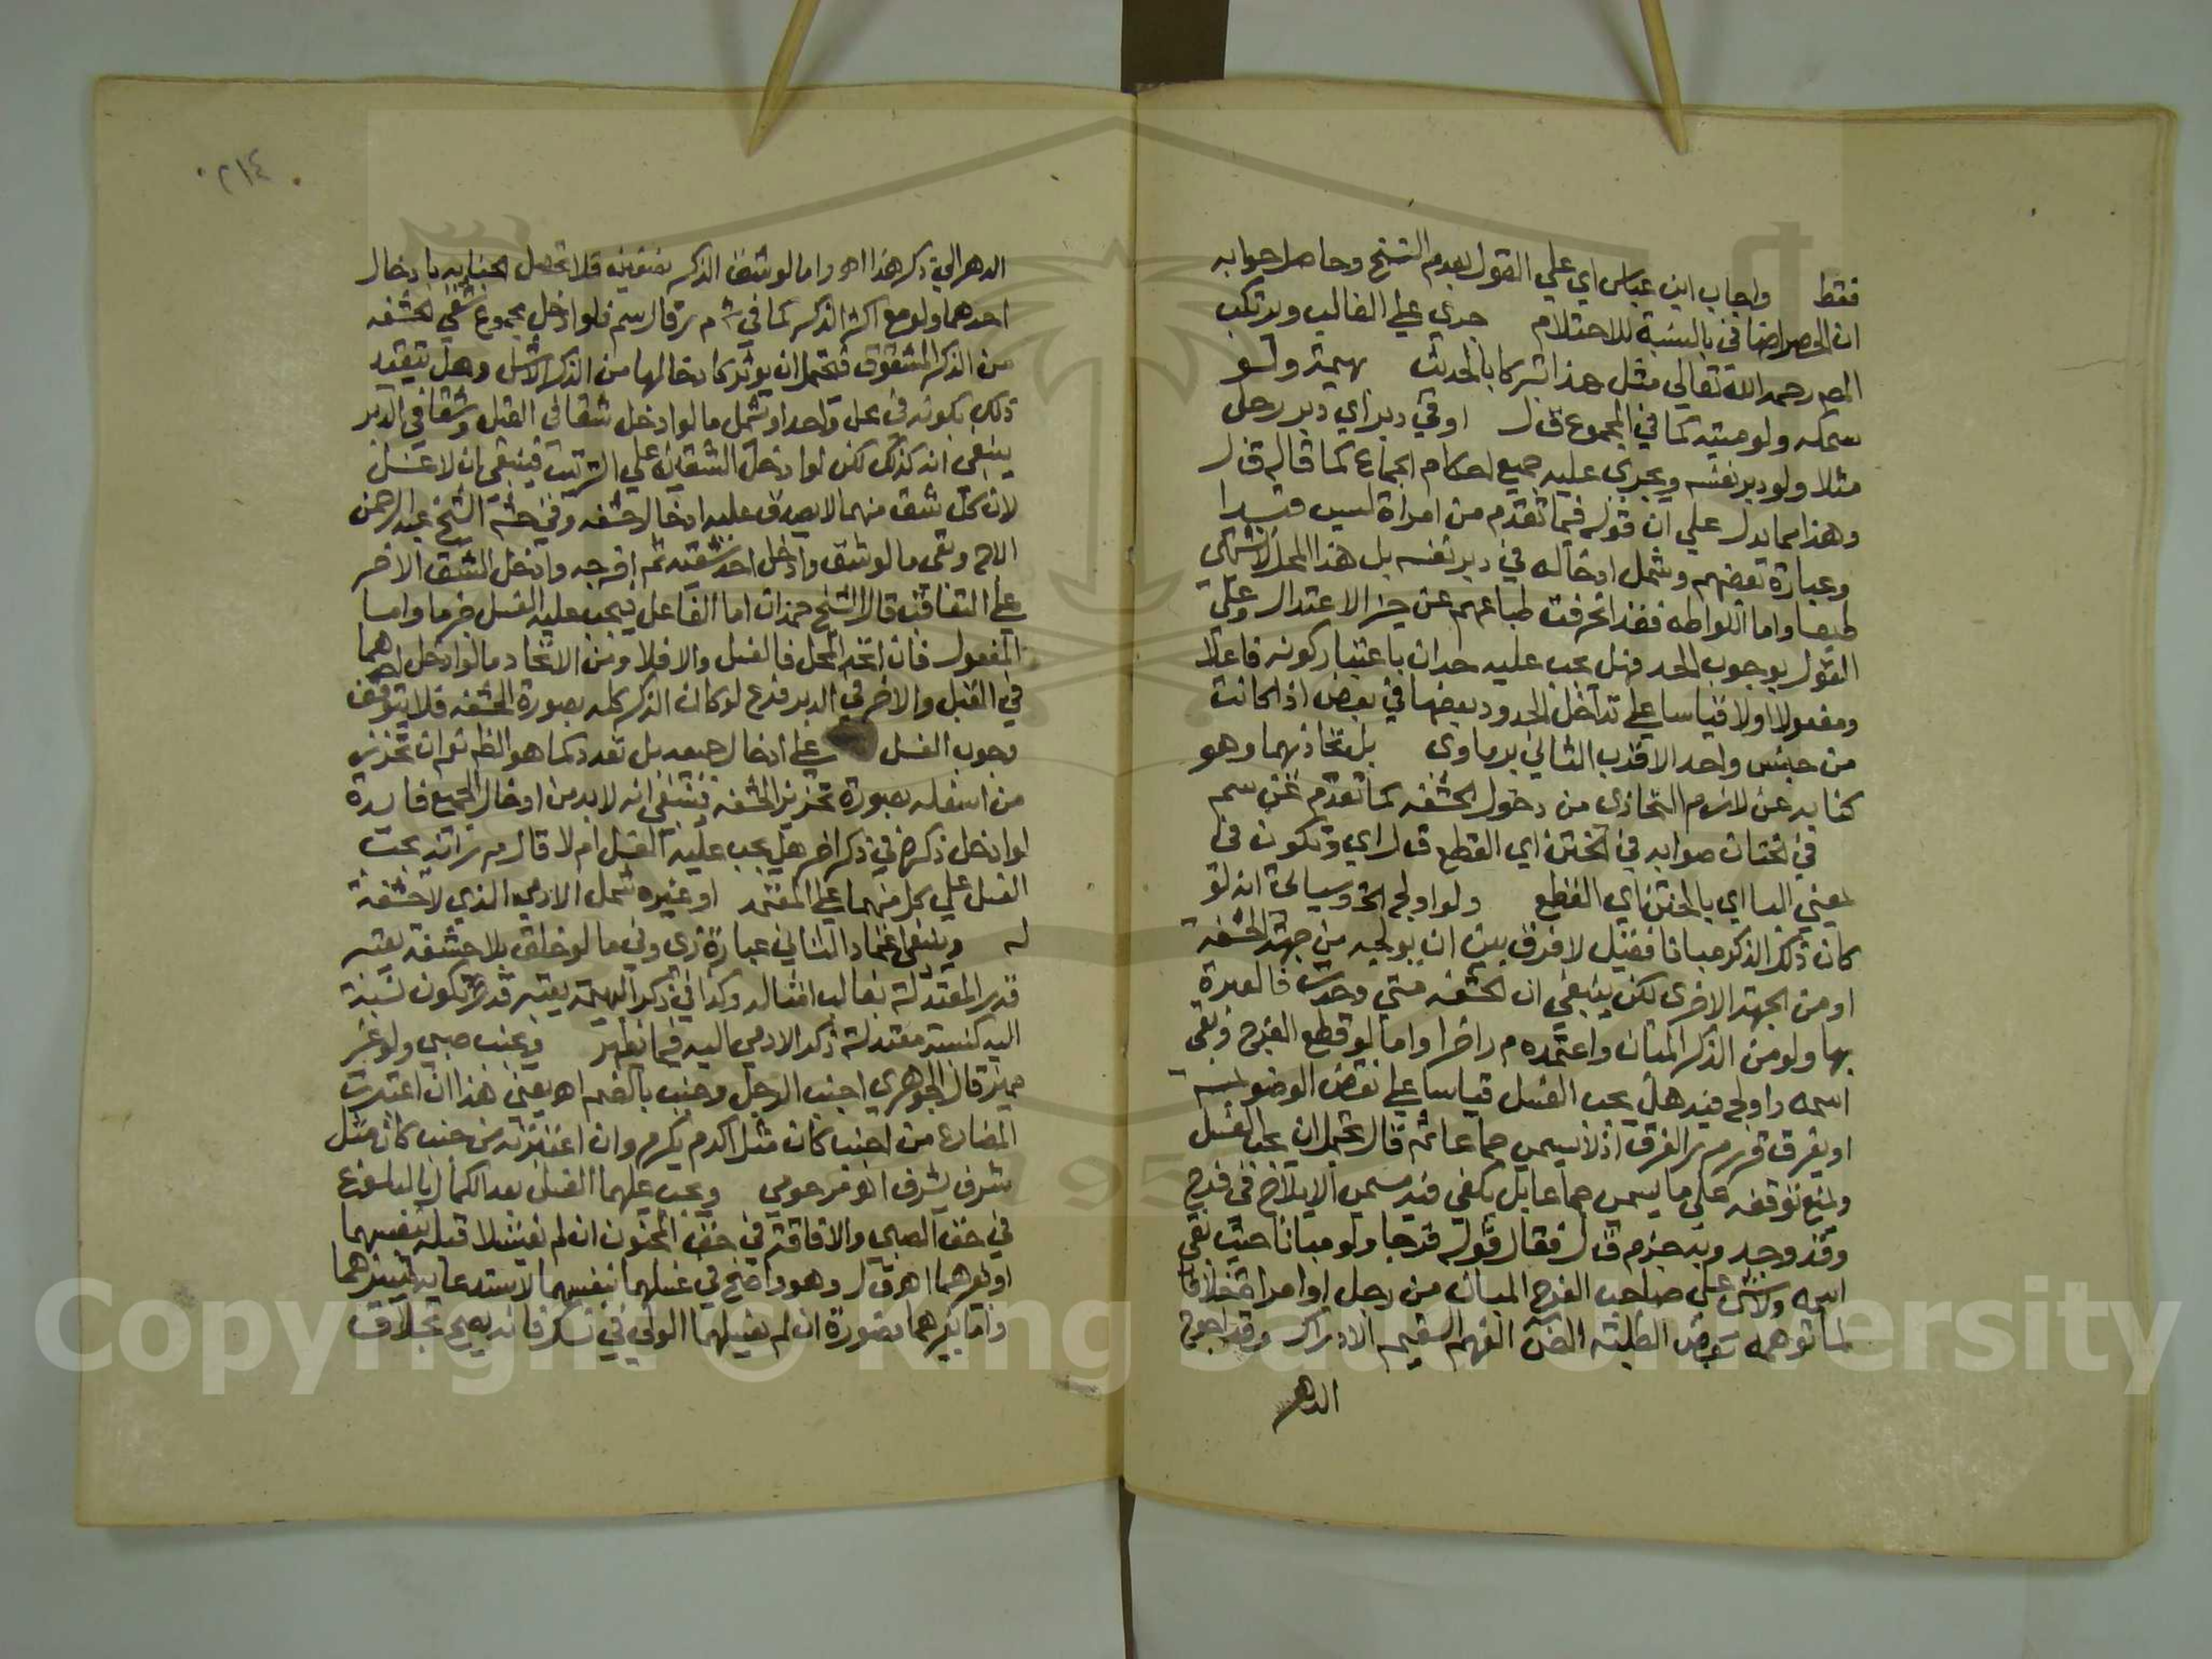 فقط واجاب ابن عباس اي علي القول بعدم النسخ وحاصل جوابه
ان الحصر اضافي بالنسبة للاحتلام جري علي الغالب ويرتكب
المص رحمه الله تعالي مثل هذا تبركا بالحديث بهيمة ولو
سمكه ولو ميته كما في المجموع ق ل او في دبر اي دبر رجل
مثلا ولو دبر نفسه ويجري عليه جميع احكام الجماع كما قاله ق ل
وهذا مما يدل علي ان قوله فيما تقدم من امراة ليس قيدا
وعبارة بعضهم وشمل ادخاله في دبر نفسه بل هذا المحل لا يشتهي
طبعا واما اللواطه فقد انحرفت طباعهم عن حيز الاعتدال وعلي
القول بوجوب الحد فهل يجب عليه حدان باعتبار كونه فاعلا
ومفعولا اولا قياسا علي تداخل الحدود بعضها في بعض اذا كانت
من جنس واحد الاقرب الثاني برماوي بل تحاذيهما وهو
كنايه عن لازم التحاذي من دخول الحشفه كما تقدم عن سم
في الختان صوابه في الختن اي القطع ق ل اي وتكون في
لمعني البا اي بالختن اي القطع ولو اولج الخ وسياتي انه لو
كان ذلك الذكر مبانا فقيل لا فرق بين ان يولجه من جهة الحشفة
او من الجهة الاخري لكن ينبغي ان الحشفه متي وجدت فالعبرة
بها ولو من الذكر المبان واعتمده م ر اخرا واما لو قطع الفرج وبقي
اسمه واولج فيه هل يجب الغسل قياسا علي نقض الوضو بمسه
او يفرق قرر م ر الفرق اذ لا يسمي جماعا ثم قال يحتمل ان يجب الغسل
ولمنع توقفه علي ما يسمي جماعا بل يكفي فيه مسمي الايلاج في فرج
وقد وجد وبه جزم ق ل فقال قوله فرجا ولو مبانا حيث بقي
اسمه ولا شي علي صاحب الفرج المبان من رجل او امراة خلافا
لما توهمه بعض الطلبة الفهم السقيم الادراك وقد احوج
الدهر
٢١٤
الدهر الي ذكر هذا اه واما لو شق الذكر نصفين فلا تحصل الجنابه بادخال
احدهما ولو مع اكثر الذكر كما في ش م ر قال سم فلو ادخل مجموع شقي الحشفه
من الذكر المشقوق فيحتمل ان يوثر كادخالها من الذكر الاشل وهل يتقيد
ذلك بكونه في محل واحد او تشمل ما لو ادخل شقا في القبل وشقا في الدبر
ينبغي انه كذلك لكن لو ادخل الشقين علي الترتيب فينبغي ان لا غسل
لان كل شق منهما لا يصدق عليه ادخال حشفه وفي حشية الشيخ عبد الرحمن
وبقي ما لو شق وادخل احد شقيه ثم اخرجه وادخل الشق الاخر
علي التعاقب قال الشيخ حمدان اما الفاعل فيجب عليه الغسل جزما واما
المفعول فان اتحد المحل فالغسل والا فلا ومن الاتحاد ما لو ادخل احدهما
في القبل والاخر في الدبر فرع لو كان الذكر كله بصورة الحشفه فلا يتوقف
وجوب الغسل علي ادخال جميعه بل تعدد كما هو الظ نعم ان تحزز
من اسفله بصورة تحزيز الحشفه فينبغي انه لا بد من ادخال الجميع فايدة
لو ادخل ذكره في ذكر اخر هل يجب عليه الغسل ام لا قال م ر انه يجب
الغسل علي كل منهما علي المعتمد او غيره شمل الادمي الذي لا حشفة
له وينبغي اعتماد الثاني عبارة زي وفي ما لو خلق بلا حشفة يعتبر
قدر المعتدلة بغالب امثاله وكذا في ذكر البهيمة يعتبر قدر تكون نسبة
اليه كنسبة معتدلة ذكر الادمي اليه فيما يظهر ويجنب صبي ولو غير
مميز قال الجوهري اجنب الرجل وجنب بالضم اه يعني هذا ان اعتبرت
المضارع من اجنب كان مثل اكرم يكرم وان اعتبرته من جنب كان مثل
شرف يشرف اه مرحومي ويجب عليهما الغسل بعد الكمال بالبلوغ
في حق الصبي والافاقة في حق المجنون ان لم يغتسلا قبله بنفسهما
او بغيرهما اه ق ل وهو واضح في غسلهما بنفسهما لاستدعايه تمييزهما
واما بغيرهما بصورة ان لم يغسلهما الولي في نسك فانه يصح بخلاف